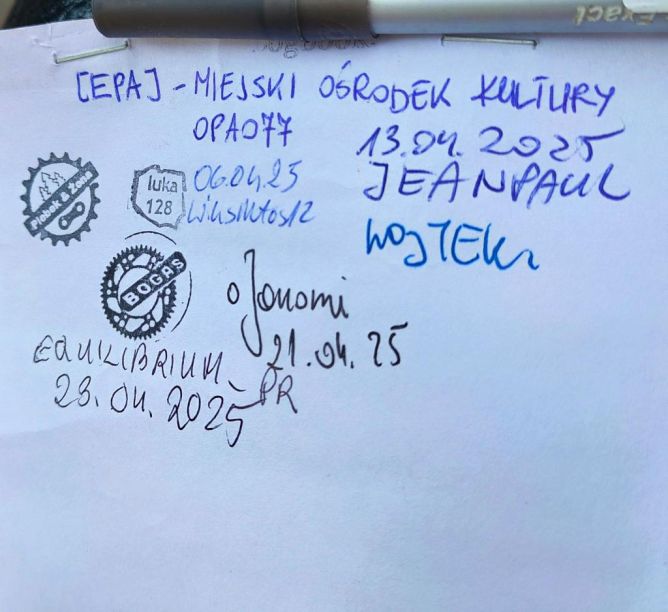 Exact
Logbook
[EPA] - MIEJSKI OŚRODEK KULTURY
OPA077
13.04.2025
JEANPAUL
luka
128
06.04.25
WojTEK
BOGAS
Jonomi
21.04.25
EQUILIBRIUM
PR